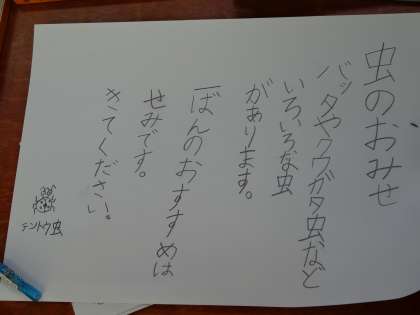 虫のおみせ
バッタやクワガタ虫など
いろいろな虫
があります。
一ばんのおすすめは
せみです。
きてください。
テントウ虫